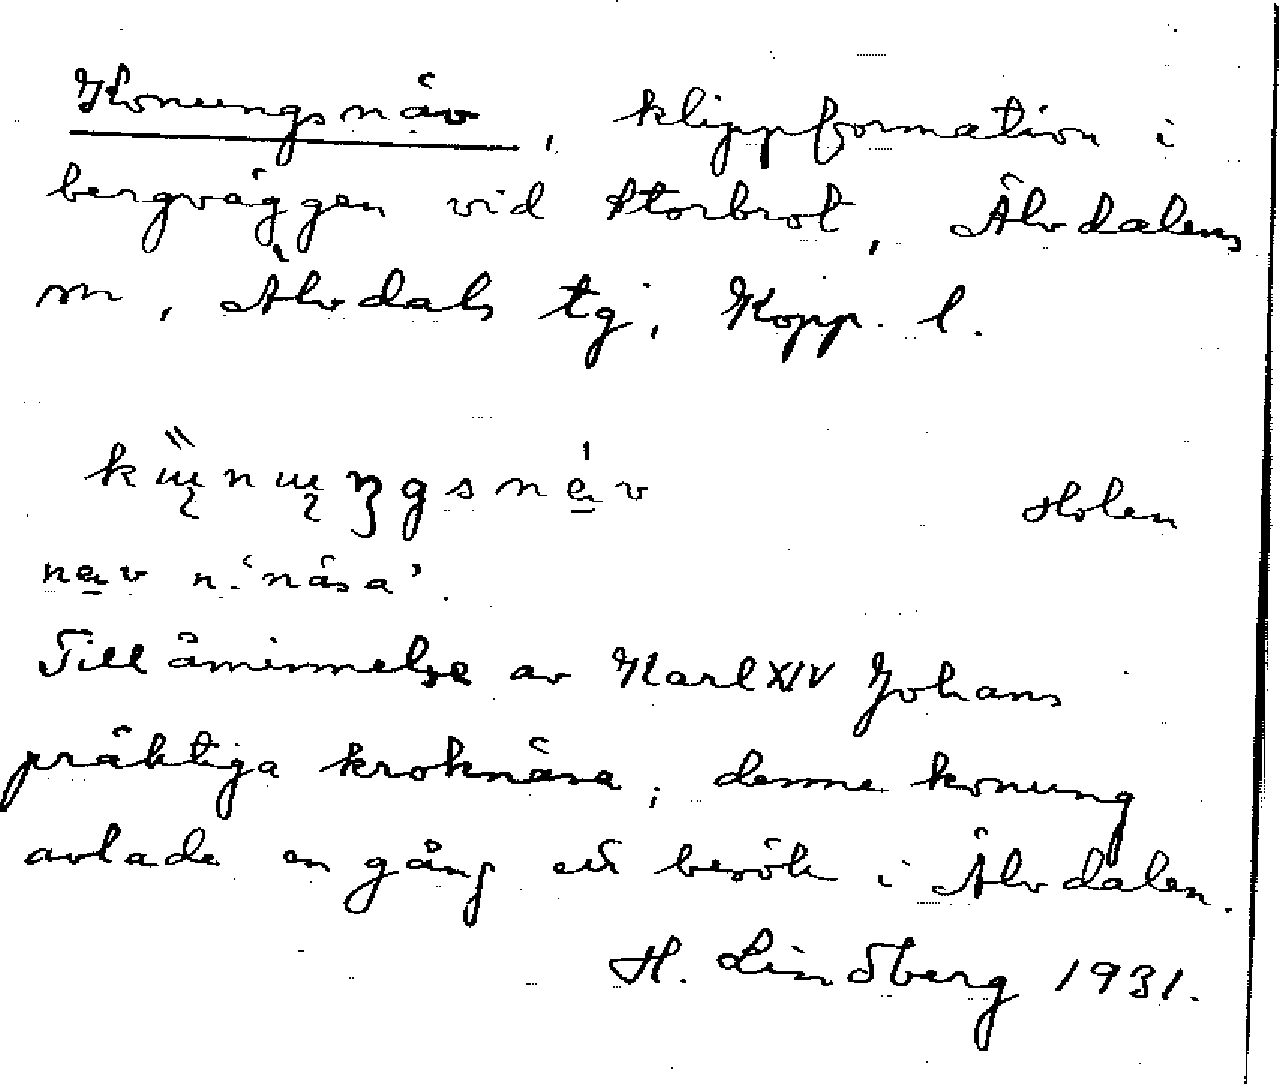 Konungsnäv, klippformation i
bergväggen vid Storbrot, Älvdalens
sn, Älvdals tg, Kopp. l.
Holen
n. 'näsa'.
Till åminnelse av Karl XIV Johans
präktiga kroknäsa; denne konung
avlade en gång ett besök i Älvdalen.
H. Lindberg 1931.